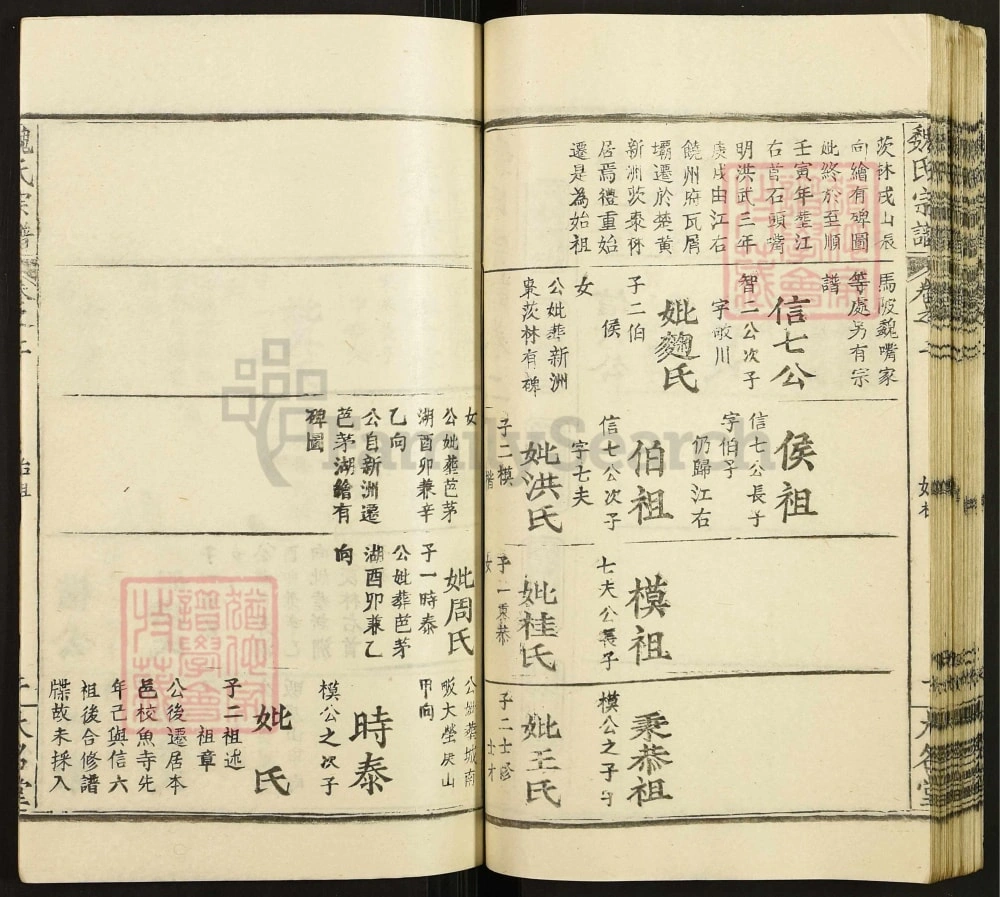 魏氏宗譜
卷之二
茨林戌山辰
向繪有碑圖
妣終於至順
壬寅年塟江
右莒石頭嘴
明洪武三年
庚戌由江右
饒州府瓦屑
壩遷於楚黃
新洲茨泰
居焉禮重始
遷是為始祖
馬陂魏嘴家
等處另有宗
譜
信七公
智二公次子
字敬川
妣麴氏
子二伯
侯
女
公妣葬新洲
棗茨林有碑
侯祖
信七公長子
字伯子
仍歸江右
伯祖
信七公次子
字七夫
妣洪氏
子二模
楷
女
公妣葬芭茅
湖酉卯兼辛
乙向
公自新洲遷
芭茅湖繪有
碑圖
模祖
七夫公長子
妣桂氏
子一秉恭
女
妣周氏
子一時泰
公妣葬芭茅
湖酉卯兼乙
向
秉恭祖
模公之子
妣王氏
子二士
士才
公妣葬城南
畈大塋庚山
甲向
時泰
模公之次子
妣 氏
子二祖述
祖章
公後遷居本
邑校魚寺先
年己與信六
祖後合修譜
牒故未採入
魏氏宗譜
卷之二
始祖
FamilySearch